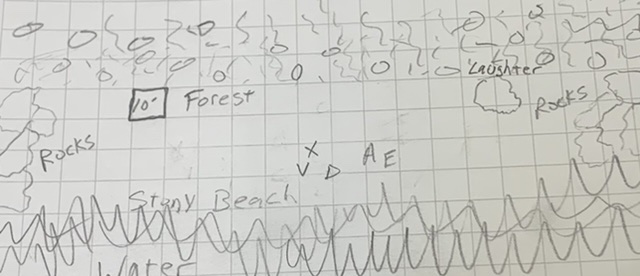 Laughter
10'
Forest
Rocks
Rocks
X
V D
A E
Stony Beach
Water